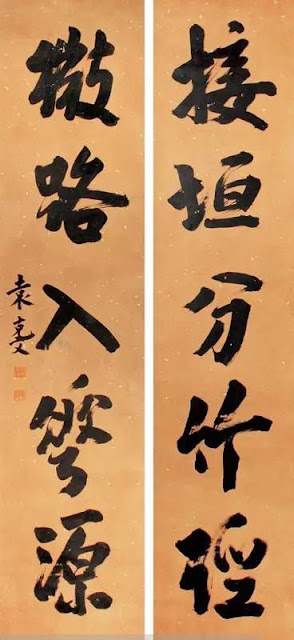 接垣分竹徑
微路入華源
袁克文